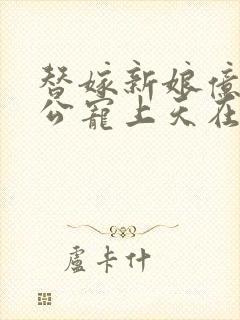 替嫁新娘億
公寵上天在
盧卡什